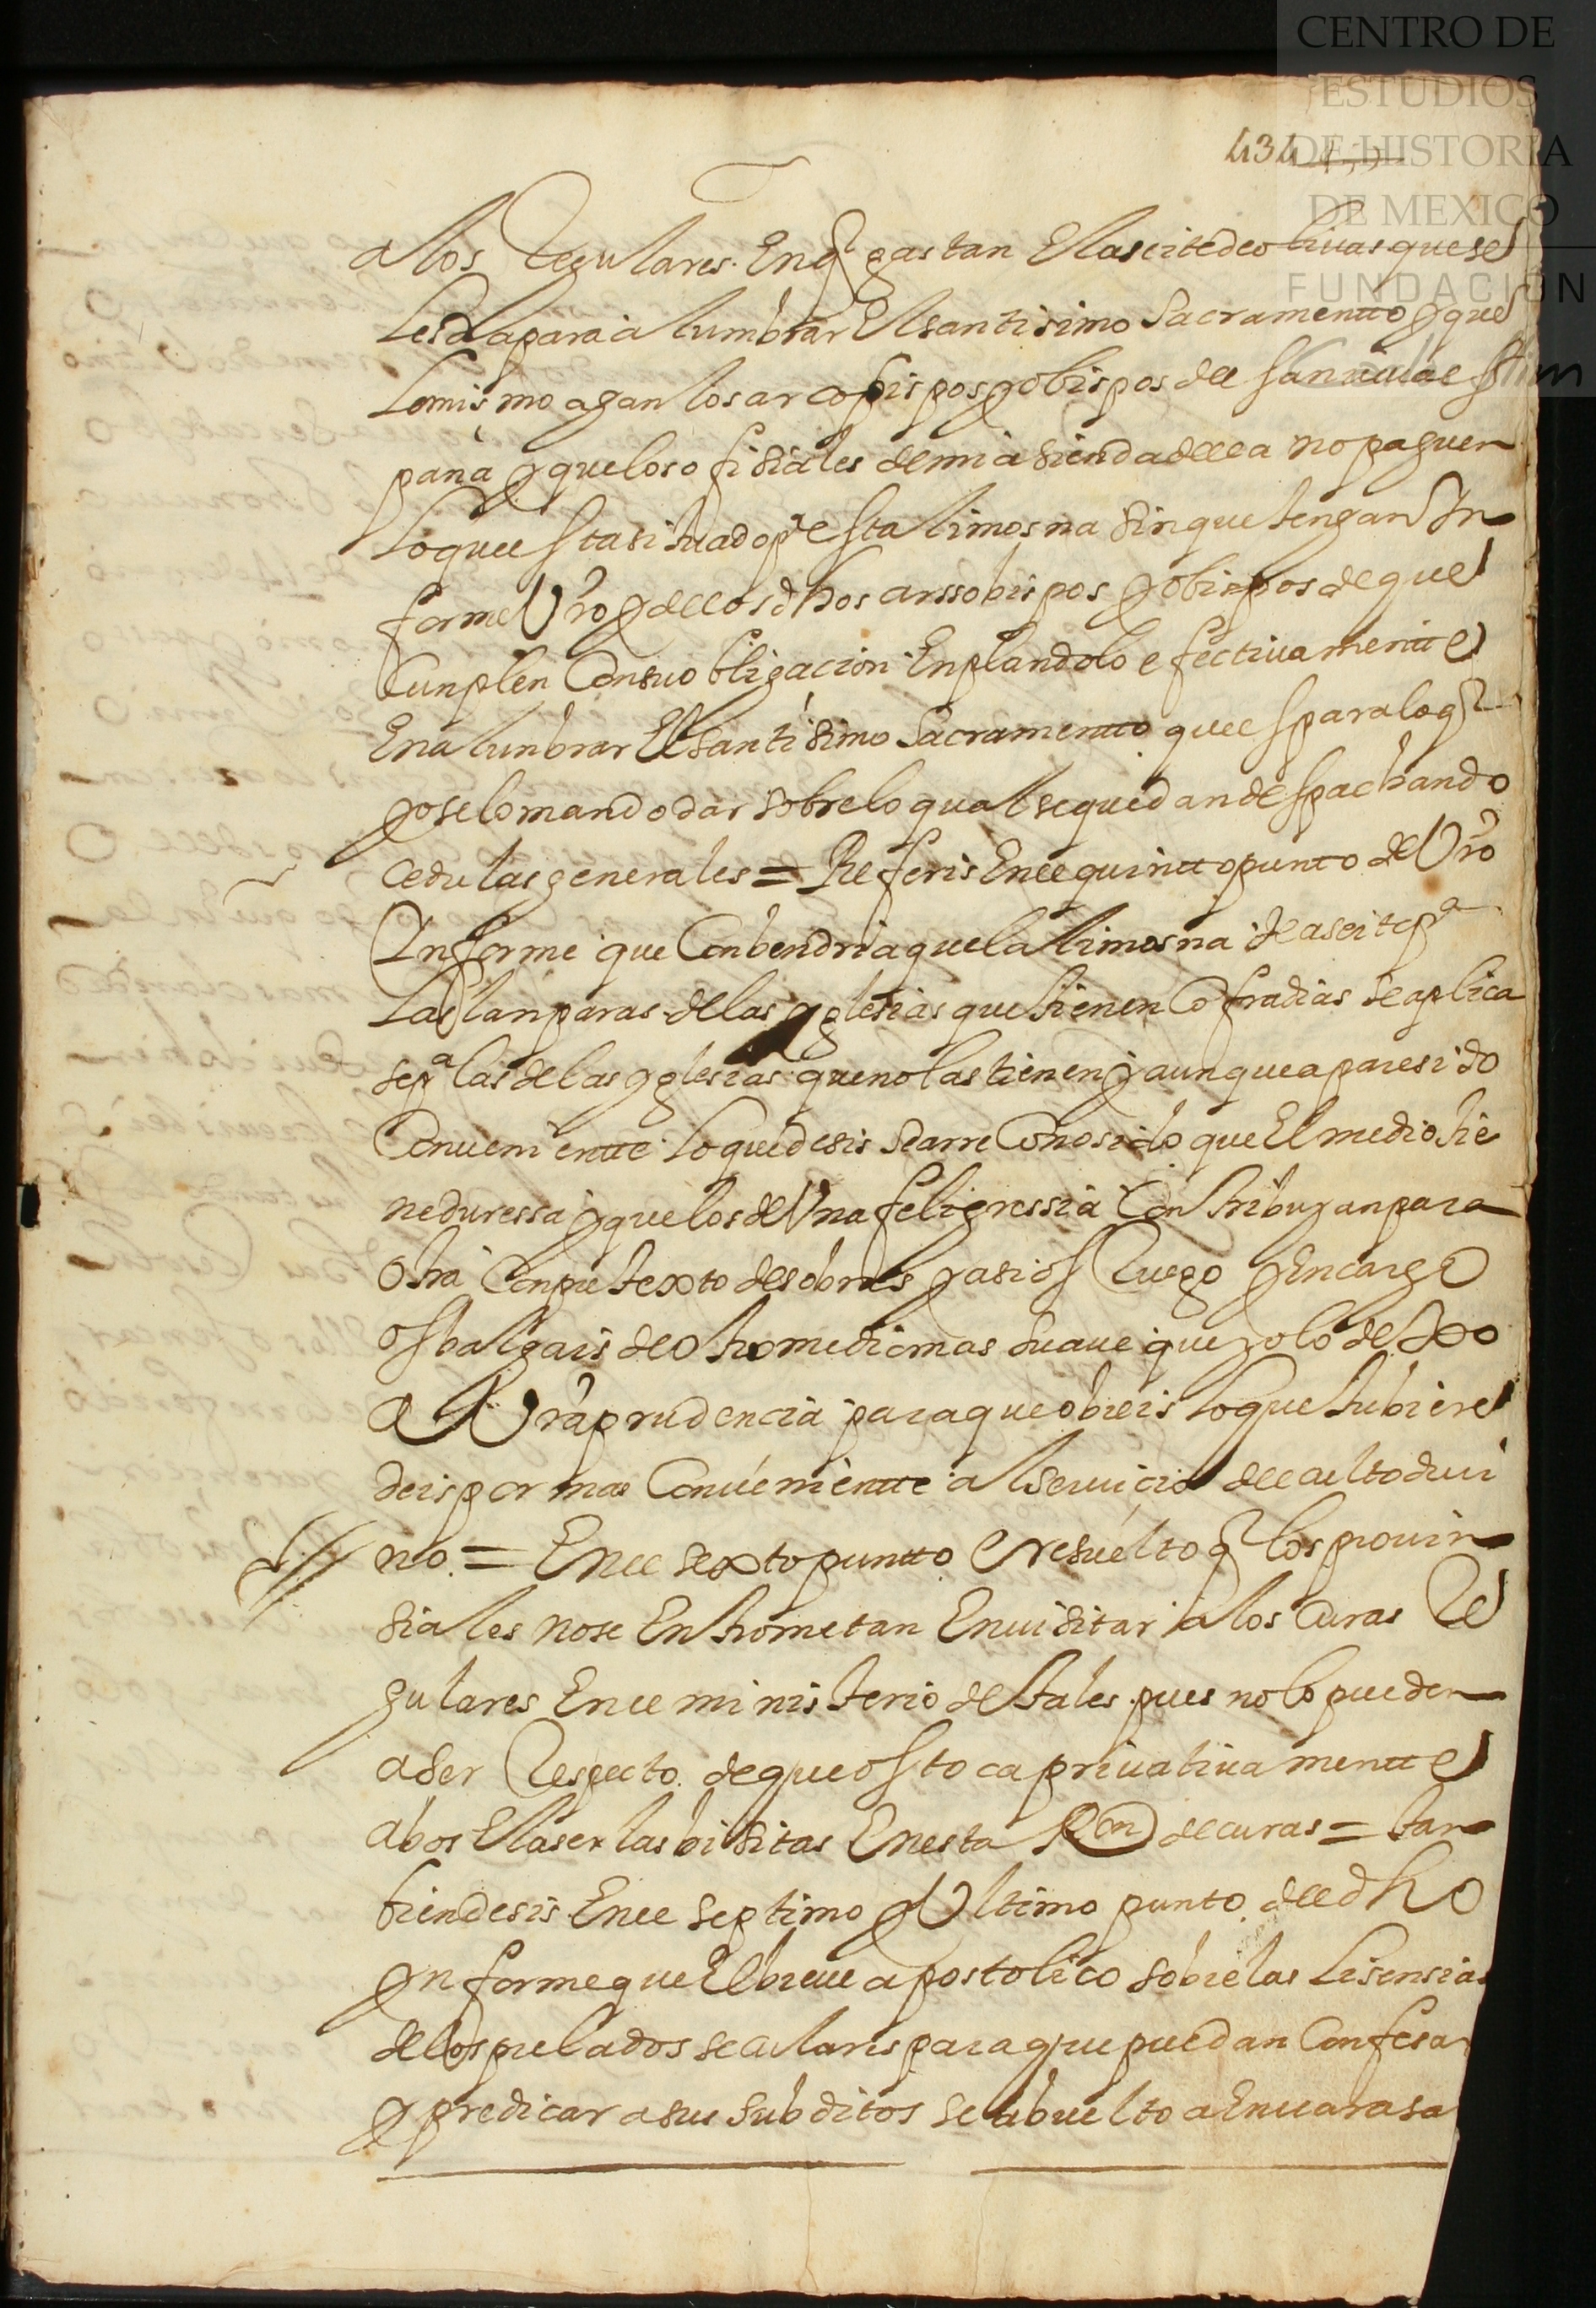 CENTRO DE
ESTUDIOS
DE HISTORIA
DE MEXICO
FUNDACIÓN
434
a los Regulares. En q gastan El aseite de olivas que se
les da para alumbrar El santisimo Sacramentto y que
lo mismo agan los arcobispos y obispos de
pana y que los ofisiales de mi asienda della no paguen
lo que esta situado pa esta limosna sin que tengan In
forme Vro y de los dhos arssobispos y obispos de que
Cunplen Con su obligacion Enplandolo efectivamentte
En alunbrar El santisimo Sacramentto que es para lo q
yo se lo mando dar sobre lo qual se quedan despachando
cedulas generales = Referis En el quintto punto de Vro
Informe que Conbendria que la limosna de aseite pa
las lanparas de las yglesias que tienen Cofradias se aplica
se pa las de las yglesias que no las tienen y aunque a paresido
Conveniente lo que desis se a rreConosido que El medio tie
ne duressa y que los de Vna feligressia Contribuyan para
otra Con pretexto de sobras y asi os Ruego y Encargo
os balgais de otro medio mas suave que solo dexo
a Vra prudencia para que obreis lo que tubiere
deis por mas Convenientte al servicio del culto divi
no. = En el sexto puntto e resuelto q los provin
siales no se Entrometan En visitar a los Curas Re
gulares En el ministerio de tales pues no lo pueden
aser Respecto de que os toca privativamentte
a bos El aser las bisitas En esta Ron de curas = tan
bien desis En el septimo y Vltimo punto del dho
ynforme que El breve apostolico sobre las lisensias
de los prelados seculares para que puedan Confesar
y predicar a sus subditos se a buelto a Enviar a sa